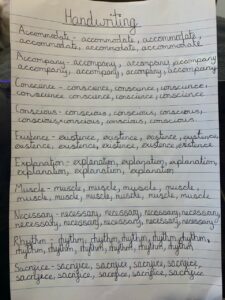 Handwriting
Accommodate - accommodate, accommodate,
accommodate, accommodate, accommodate
Accompany - accompany, accompany, accompany
accompany, accompany, accompany, accompany
Conscience - conscience, conscience, conscience,
conscience, conscience, conscience, conscience
Conscious - conscious, conscious, conscious,
conscious, conscious, conscious, conscious
Existence - existence, existence, existence, existence,
existence, existence, existence, existence, existence
Explanation - explanation, explanation, explanation,
explanation, explanation, explanation
Muscle - muscle, muscle, muscle, muscle,
muscle, muscle, muscle, muscle, muscle
Necessary - necessary, necessary, necessary, necessary,
necessary, necessary, necessary, necessary, necessary
Rhythm - rhythm, rhythm, rhythm, rhythm, rhythm,
rhythm, rhythm, rhythm, rhythm, rhythm, rhythm
Sacrifice - sacrifice, sacrifice, sacrifice, sacrifice,
sacrifice, sacrifice, sacrifice, sacrifice, sacrifice